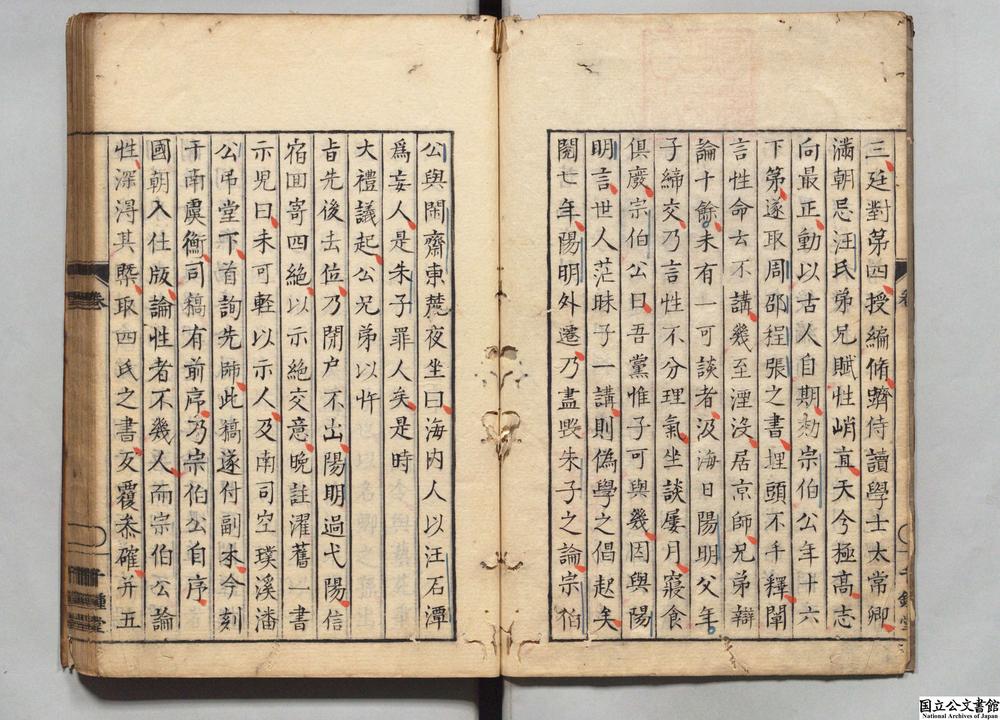 三廷對第四授編脩躋侍讀學士太常卿
滿朝忌汪氏弟兄賦性峭直天今極高志
向最正動以古人自期劾宗伯公年十六
下第遂取周邵程張之書埋頭不手釋闡
言性命去不講幾至湮沒居京師兄弟辯
論十餘未有一可談者汲海日陽明父年
子締交乃言性不分理氣坐談屢月寢食
俱廢宗伯公曰吾黨惟子可與幾因與陽
明言世人茫昧子一講則偽學之倡起矣
閱七年陽明外遷乃盡毀朱子之論宗伯
公與閑齋東麓夜坐曰海內人以汪石潭
爲妄人是朱子罪人矣是時
大禮議起公兄弟以忤
旨先後去位乃閉户不出陽明過弋陽信
宿回寄四絕以示絕交意晚註濯舊一書
示児曰未可輕以示人及南司空璞溪潘
公吊堂下首詢先師此稿遂付副本今刻
于南虞衡司稿有前序乃宗伯公自序
國朝入仕版論性者不幾人而宗伯公論
性深淂其槩取四氏之書反覆叅確并五
卷
千鍾堂
国立公文書館
National Archives of Japan